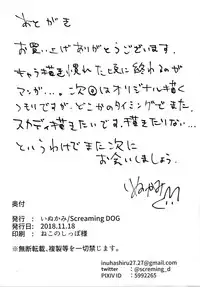 あとがき
お買い上げありがとうございます。
キャラ描き慣れた頃に終わるのが
マンガ…。次回はオリジナル描く
つもりですが、どこかのタイミングでまた
スカディ描きたいです。描きたりない…
というわけでまた次に
お会いしましょう。
いぬかみ
奥付
発行：いぬかみ/Screaming DOG
発行日：2018.11.18
印刷：ねこのしっぽ様
※無断転載、複製等を一切禁じます。
inuhashiru27.27@gmail.com
twitter：@screming_d
PIXIV ID：5992265